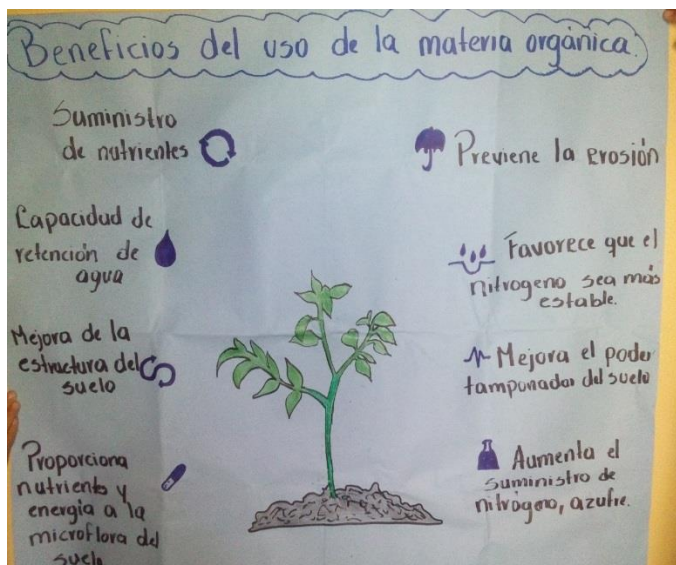 Beneficios del uso de la materia orgánica.
Suministro
de nutrientes
Capacidad de
retención de
agua
Mejora de la
estructura del
suelo
Proporciona
nutrients y
energía a la
microflora del
suelo
Previene la erosión
Favorece que el
nitrogeno sea más
estable.
Mejora el poder
tamponador del suelo
Aumenta el
suministro de
nitrógeno, azufre.